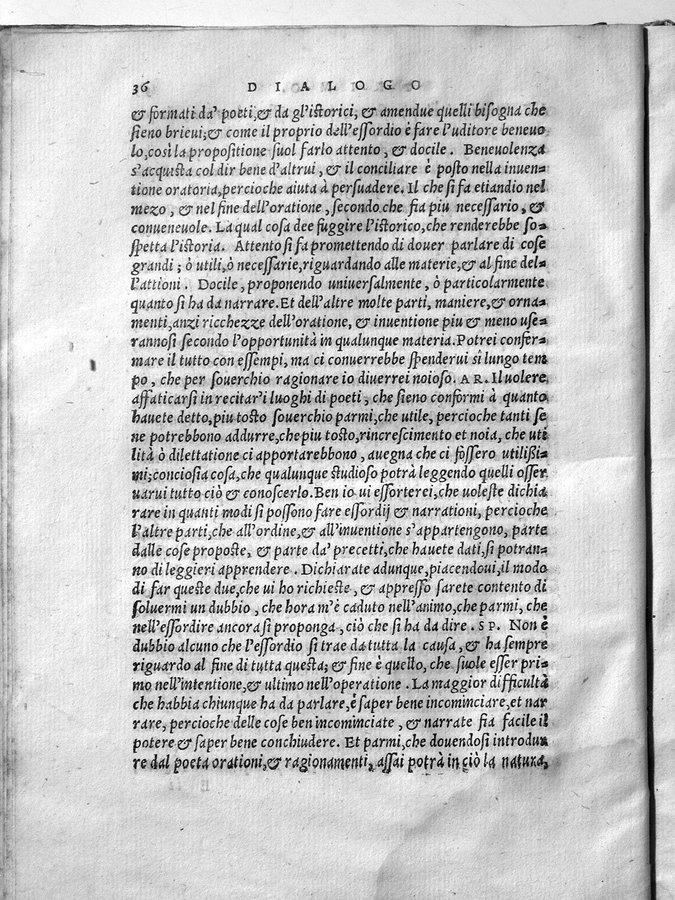 36 DIALOGO
& formati da' poeti, & da gl'istorici, & amendue quelli bisogna che
sieno brieui; & come il proprio dell'essordio è fare l'uditore beneuo
lo, così la propositione suol farlo attento, & docile. Beneuolenza
s'acquista col dir bene d'altrui, & il conciliare è posto nella inuen=
tione oratoria, percioche aiuta à persuadere. Il che si fa etiandio nel
mezo, & nel fine dell'oratione, secondo che fia piu necessario, &
conueneuole. La qual cosa dee fuggire l'istorico, che renderebbe so=
spetta l'istoria. Attento si fa promettendo di douer parlare di cose
grandi; ò utili, ò necessarie, riguardando alle materie, & al fine del=
l'attioni. Docile, proponendo uniuersalmente, ò particolarmente
quanto si ha da narrare. Et dell'altre molte parti, maniere, & orna=
menti, anzi ricchezze dell'oratione, & inuentione piu & meno use=
rannosi secondo l'opportunità in qualunque materia. Potrei confer=
mare il tutto con essempi, ma ci conuerrebbe spenderui sì lungo tem
po, che per souerchio ragionare io diuerrei noioso. AR. Il uolere
affaticarsi in recitar'i luoghi di poeti, che sieno conformi à quanto
hauete detto, piu tosto souerchio parmi, che utile, percioche tanti se
ne potrebbono addurre, che piu tosto, rincrescimento et noia, che uti
lità ò dilettatione ci apportarebbono, auegna che ci fossero utilißi=
mi; conciosia cosa, che qualunque studioso potrà leggendo quelli osser
uarui tutto ciò & conoscerlo. Ben io ui essorterei, che uoleste dichia
rare in quanti modi si possono fare essordij & narrationi, percioche
l'altre parti, che all'ordine, & all'inuentione s'appartengono, parte
dalle cose proposte, & parte da' precetti, che hauete dati, si potran=
no di leggieri apprendere. Dichiarate adunque, piacendoui, il modo
di far queste due, che ui ho richieste, & appresso sarete contento di
soluermi un dubbio, che hora m'è caduto nell'animo, che parmi, che
nell'essordire ancora si proponga, ciò che si ha da dire. SP. Non è
dubbio alcuno che l'essordio si trae da tutta la causa, & ha sempre
riguardo al fine di tutta questa; & fine è quello, che suole esser pri=
mo nell'intentione, & ultimo nell'operatione. La maggior difficultà
che habbia chiunque ha da parlare, è saper bene incominciare, et nar
rare, percioche delle cose ben incominciate, & narrate fia facile il
potere & saper bene conchiudere. Et parmi, che douendosi introdur
re dal poeta orationi, & ragionamenti, assai potrà in ciò la natura,